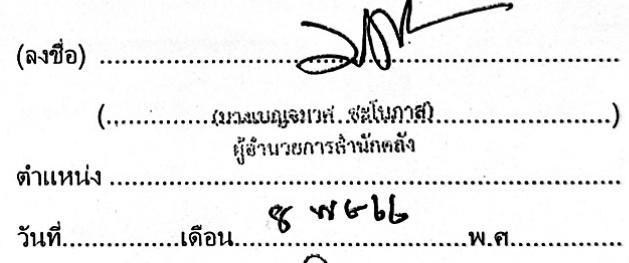 (ลงชื่อ) ..........................................................
(................(นางเบญจมาศ ชะโนภาส)................)
ผู้อำนวยการสำนักคลัง
ตำแหน่ง ..........................................................
8
วันที่....................เดือน........................................พ.ศ...................